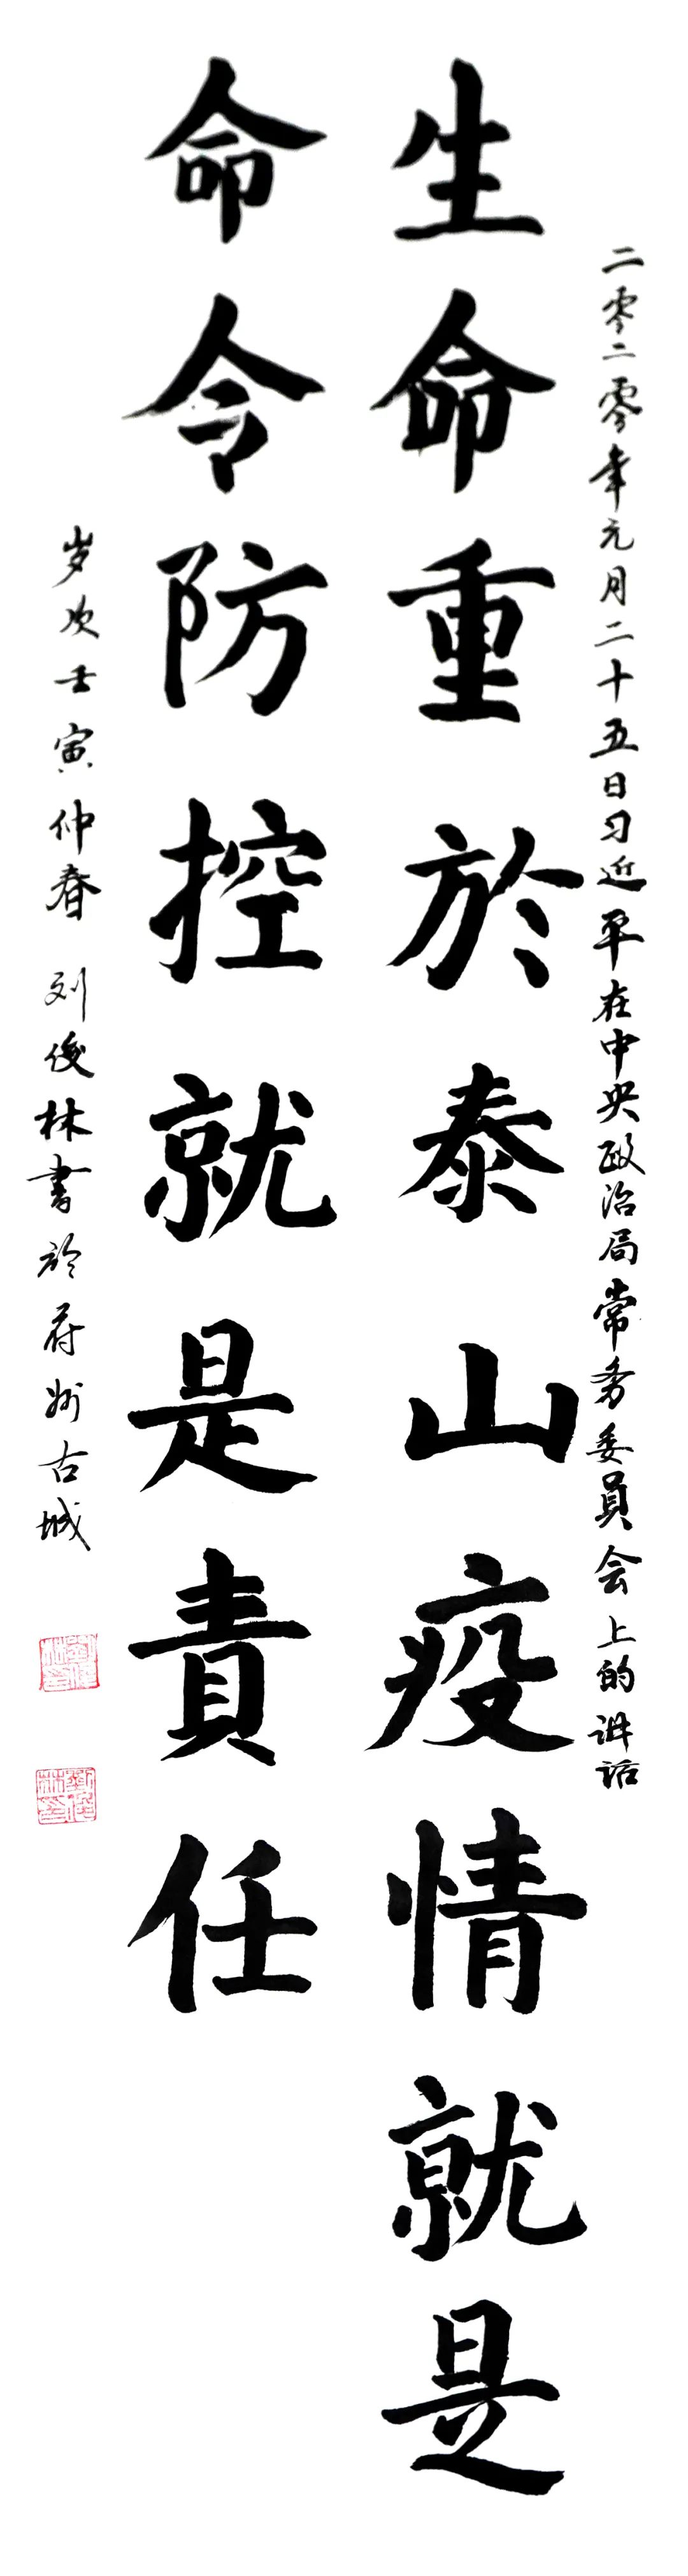 二零二零年元月二十五日习近平在中央政治局常务委员会上的讲话
生命重於泰山疫情就是
命令防控就是責任
岁次壬寅仲春 刘俊林書於蔚州古城